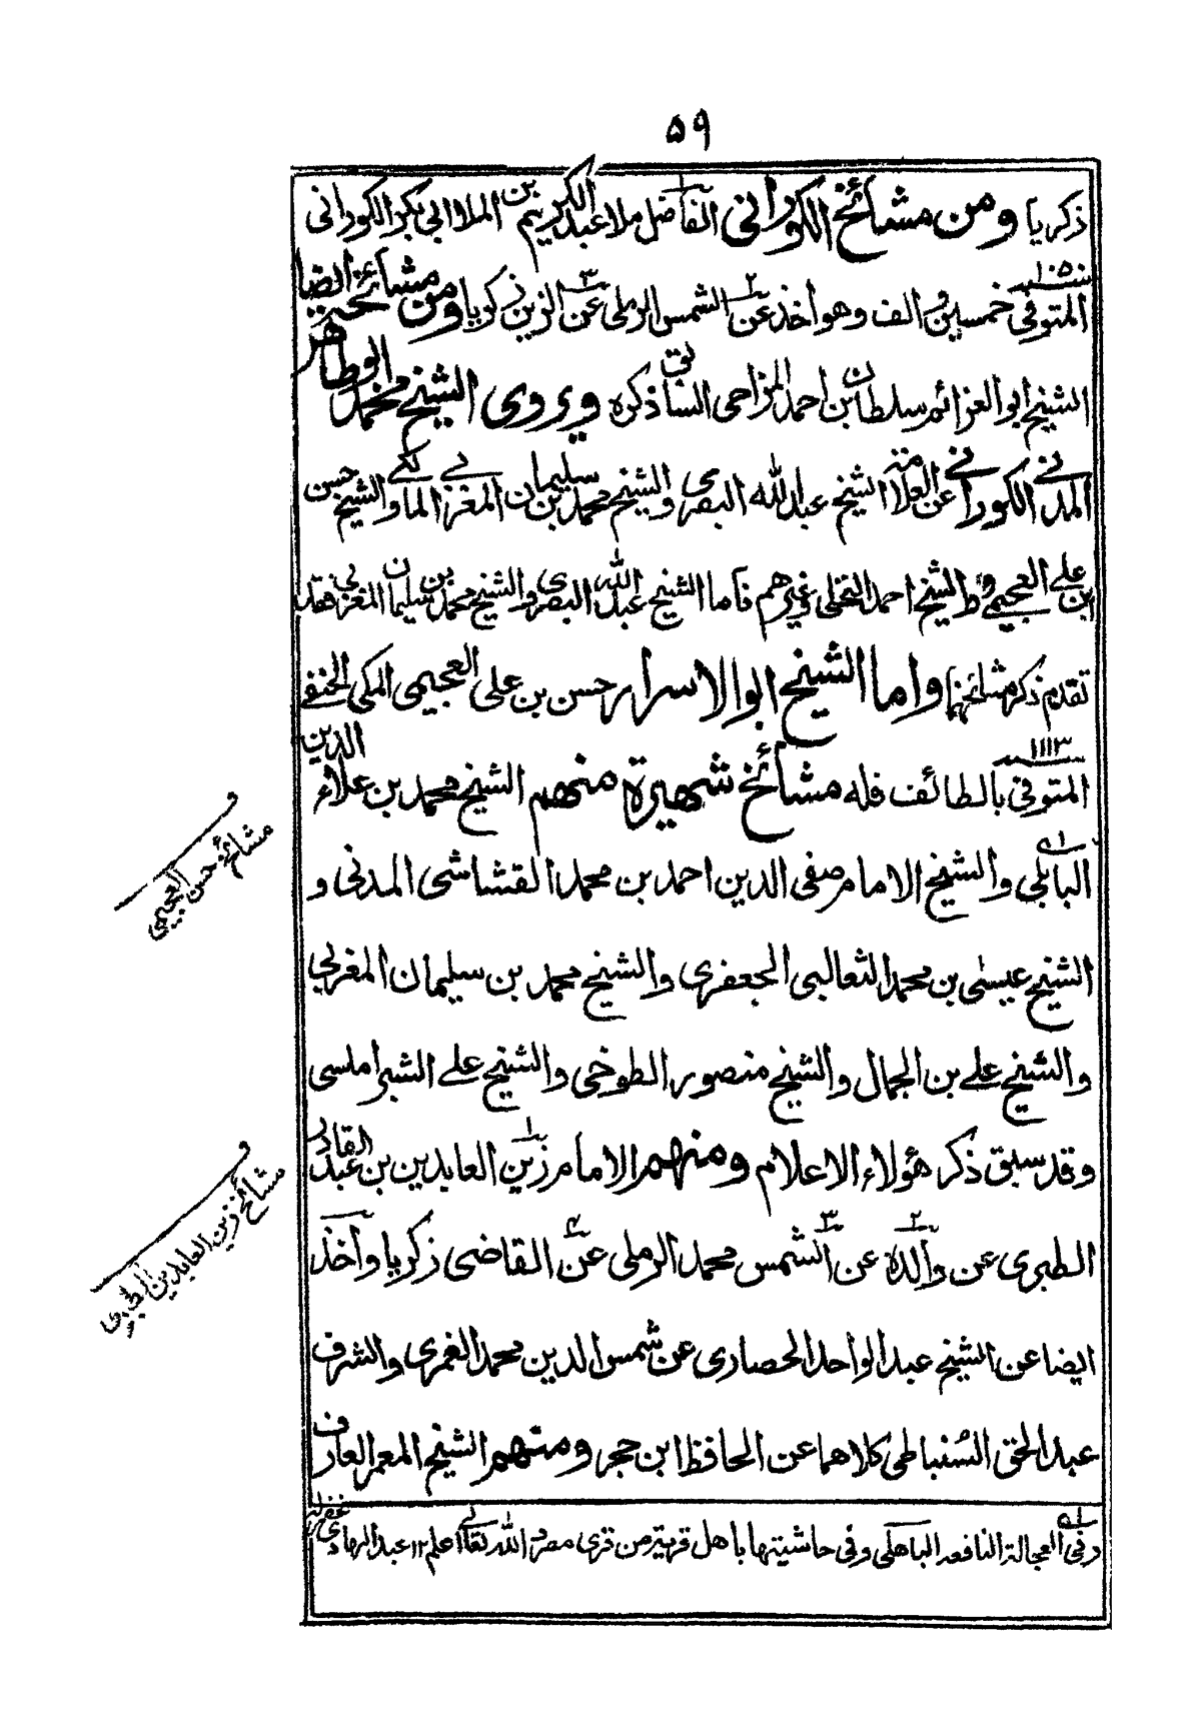 ٥٩
ذكريا ومن مشائخ الكوراني الفاضل ملا عبد الكريم بن الملا ابي بكر الكوراني
المتوفى سنة ١٠٥٠ خمسين والف وهو أخذ عن الشمس الرملى عن الزين زكريا ومن مشائخه ايضا
الشيخ ابو العزائم سلطان بن احمد المزاحى السابق ذكره ويروى الشيخ محمد ابو طاهر
المدني الكوراني عن العلامة الشيخ عبد الله البصرى والشيخ محمد بن سليمان المغربي المكي والشيخ حسن
بن علي العجيمي والشيخ احمد النخلى وغيرهم فأما الشيخ عبد الله البصرى والشيخ محمد بن سليمان المغربي فقد
تقدم ذكر مشائخهما واما الشيخ ابو الاسرار حسن بن على العجيمى المكى الحنفي
المتوفى بالطائف سنة ١١١٣ فله مشائخ شهيرة منهم الشيخ محمد بن علاء الدين
البابلى والشيخ الامام صفى الدين احمد بن محمد القشاشى المدنى و
الشيخ عيسى بن محمد الثعالبى الجعفرى والشيخ محمد بن سليمان المغربي
والشيخ علي بن الجمال والشيخ منصور الطوخى والشيخ علي الشبراملسى
وقد سبق ذكر هؤلاء الاعلام ومنهم الامام زين العابدين بن عبد القادر
الطبرى عن والده عن الشمس محمد الرملى عن القاضى زكريا وأخذ
ايضا عن الشيخ عبد الواحد الحصارى عن شمس الدين محمد الغمرى والشرف
عبد الحق السنباطى كلاهما عن الحافظ ابن حجر ومنهم الشيخ المعمر العارف
وفى العجالة النافعه الباهلى وفى حاشيتها باهل قرية من قرى مصر والله تعالى اعلم ١٢ عبد الهادى غفر له
مشائخ حسن العجيمي
مشائخ زين العابدين الطبري